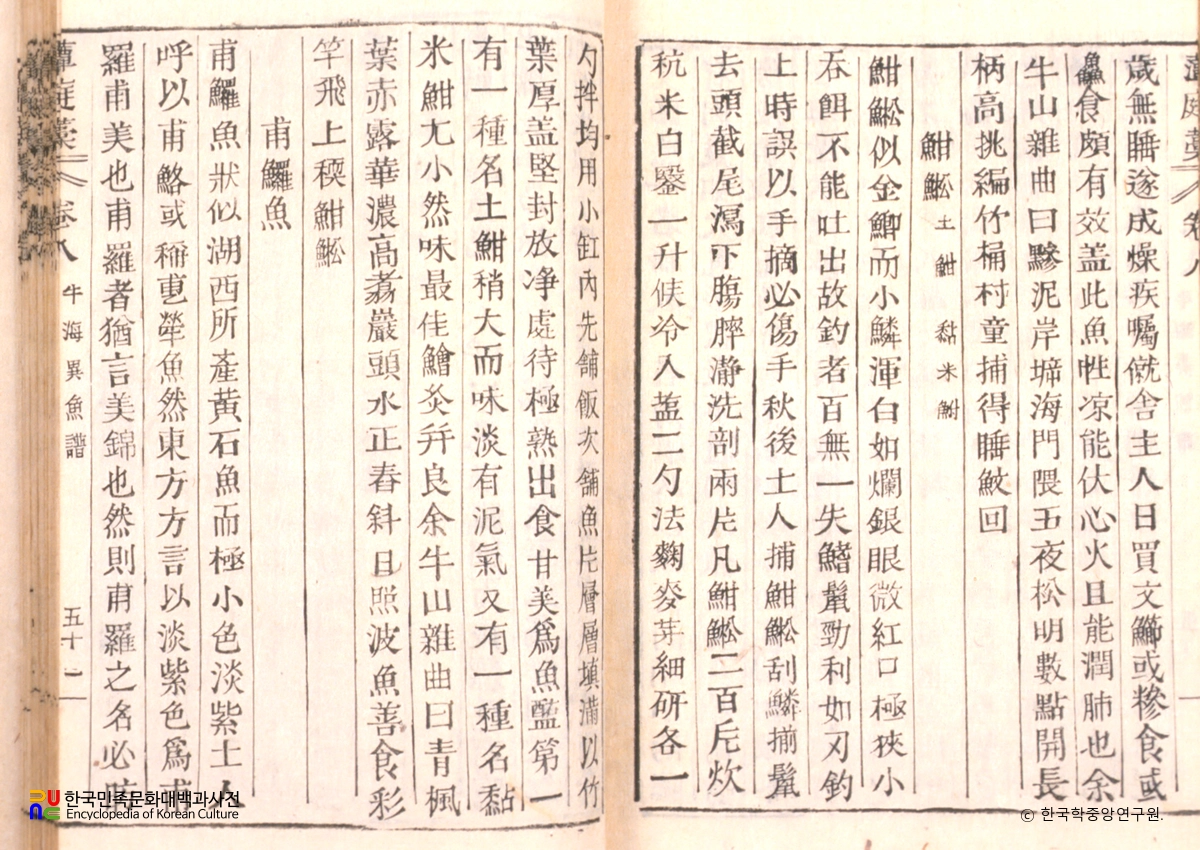 歲無睡遂成燥疾囑僦舍主人日買文鰤或糝食或
食頗有效盖此魚性凉能伏心火且能潤肺也余
牛山雜曲曰黲泥岸墆海門隈五夜松明數點開長
柄高挑編竹桶村童捕得睡鮫回
魽䱋 土魽 黏米魽
魽䱋似金鯽而小鱗渾白如爛銀眼微紅口極狹小
吞餌不能吐出故釣者百無一失鰭鬣勁利如刃釣
上時誤以手摘必傷手秋後土人捕魽䱋刮鱗揃鬣
去頭截尾瀉下膓脺瀞洗剖兩片凡魽䱋二百片炊
秔米白鑿一升俟冷入盐二勺法麴麥芽細研各一
勺拌均用小缸內先舖飯次舖魚片層層填滿以竹
葉厚盖堅封放净處待極熟出食甘美爲魚醢第一
有一種名土魽稍大而味淡有泥氣又有一種名黏
米魽尤小然味最佳鱠炙幷良余牛山雜曲曰青楓
葉赤露華濃高翥巖頭水正舂斜日照波魚善食彩
竿飛上稬魽䱋
甫鱺魚
甫鱺魚狀似湖西所產黃石魚而極小色淡紫土人
呼以甫鮥或稱䰽犖魚然東方方言以淡紫色爲甫
羅甫美也甫羅者猶言美錦也然則甫羅之名必
藫庭藁 卷八 牛海異魚譜 五十二
한국민족문화대백과사전
Encyclopedia of Korean Culture
© 한국학중앙연구원.